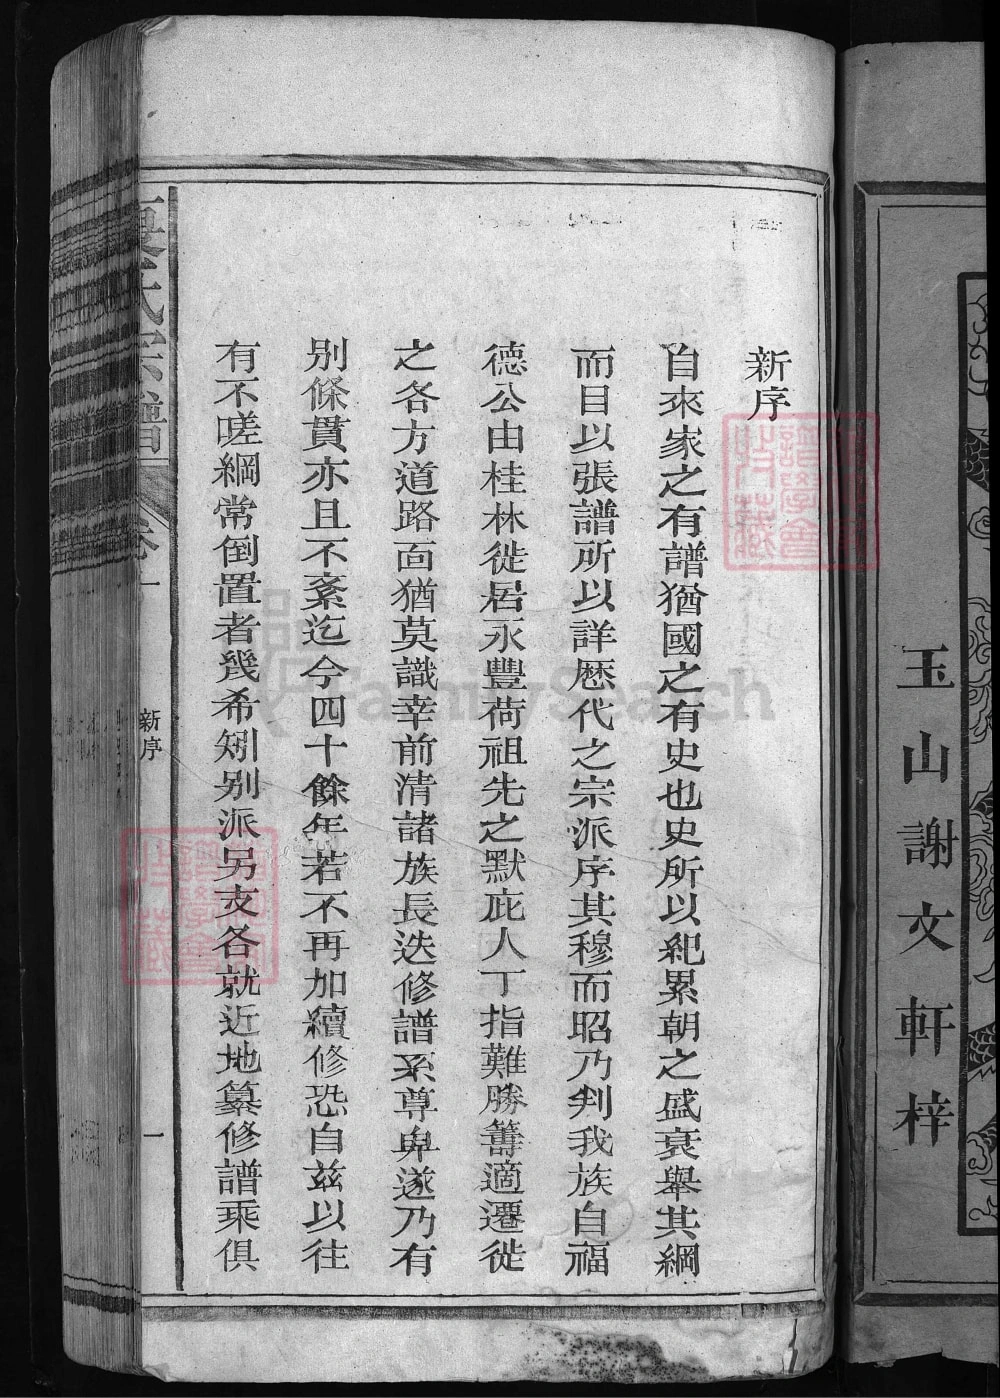 玉山謝文軒梓
新序
自來家之有譜猶國之有史也史所以紀累朝之盛衰舉其綱
而目以張譜所以詳歷代之宗派序其穆而昭乃判我族自福
德公由桂林徙居永豐荷祖先之默庇人丁指難勝籌適遷徙
之各方道路面猶莫識幸前清諸族長迭修譜系尊卑遂乃有
別條貫亦且不紊迄今四十餘年若不再加續修恐自茲以往
有不嗟綱常倒置者幾希矧別派另支各就近地纂修譜乘俱
氏宗譜
卷一
新序
一
FamilySearch